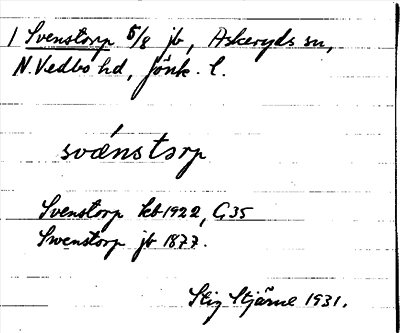 1 Svenstorp 5/8 jb, Askeryds sn,
N. Vedbo hd, Jönk. l.
svǽnstɔrp
Svenstorp kb 1922, G35
Swenstorp jb 1877.
Stig Stjärne 1931.